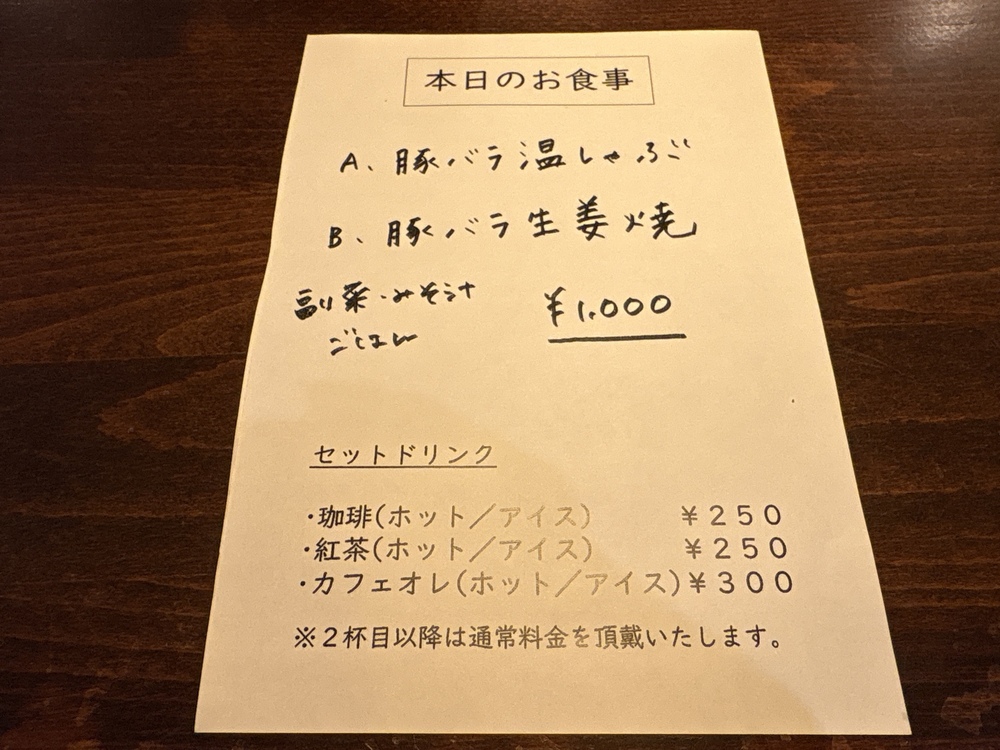 本日のお食事
A、豚バラ温しゃぶ
B、豚バラ生姜焼
副菜・みそ汁
ごはん
¥1,000
セットドリンク
・珈琲(ホット／アイス) ￥２５０
・紅茶(ホット／アイス) ￥２５０
・カフェオレ(ホット／アイス)￥３００
※２杯目以降は通常料金を頂戴いたします。